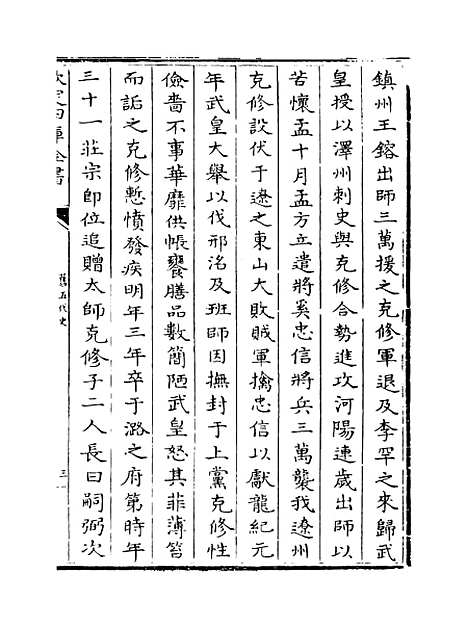 鎮州王鎔出師三萬援之克修軍退及李罕之來歸武
皇授以澤州刺史與克修合勢進攻河陽連歲出師以
苦懷孟十月孟方立遣將奚忠信將兵三萬襲我遼州
克修設伏于遼之東山大敗賊軍擒忠信以獻龍紀元
年武皇大舉以伐邢洺及班師因撫封于上黨克修性
儉嗇不事華靡供帳饔膳品數簡陋武皇怒其菲薄笞
而詬之克修慙憤發疾明年三年卒于潞之府第時年
三十一莊宗即位追贈太師克修子二人長曰嗣弼次
欽定四庫全書
舊五代史
三